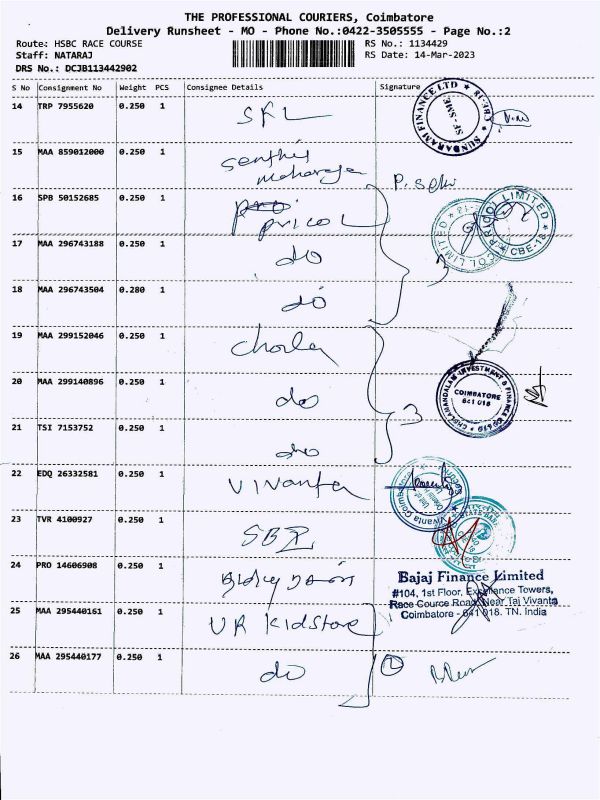 THE PROFESSIONAL COURIERS, Coimbatore
Delivery Runsheet - MO - Phone No.:0422-3505555 - Page No.:2
Route: HSBC RACE COURSE
RS No.: 1134429
Staff: NATARAJ
RS Date: 14-Mar-2023
DRS No.: DCJB113442902
S No Consignment No Weight PCS Consignee Details Signature
14 TRP 7955620 0.250 1 SFL
SUNDARAM FINANCE LTD
SF-SME
15 MAA 859012000 0.250 1 Senthil
maharaja P. Selvi
16 SPB 50152685 0.250 1 pricol
PRICOL LIMITED
CBE-18
17 MAA 296743188 0.250 1 do 3
18 MAA 296743504 0.280 1 do
19 MAA 299152046 0.250 1 chola
20 MAA 299140896 0.250 1 do 3
CHOLAMANDALAM INVESTMENT & FINANCE CO LTD
COIMBATORE
641 018
21 TSI 7153752 0.250 1 do
22 EDQ 26332581 0.250 1 Vivanta
Vivanta Coimbatore
23 TVR 4100927 0.250 1 SBI
24 PRO 14606908 0.250 1
Bajaj Finance Limited
#104, 1st Floor, Excellence Towers,
Race Cource Road, Near Taj Vivanta
Coimbatore - 641 018. TN. India
25 MAA 295440161 0.250 1 UR Kidstore
26 MAA 295440177 0.250 1 do 2